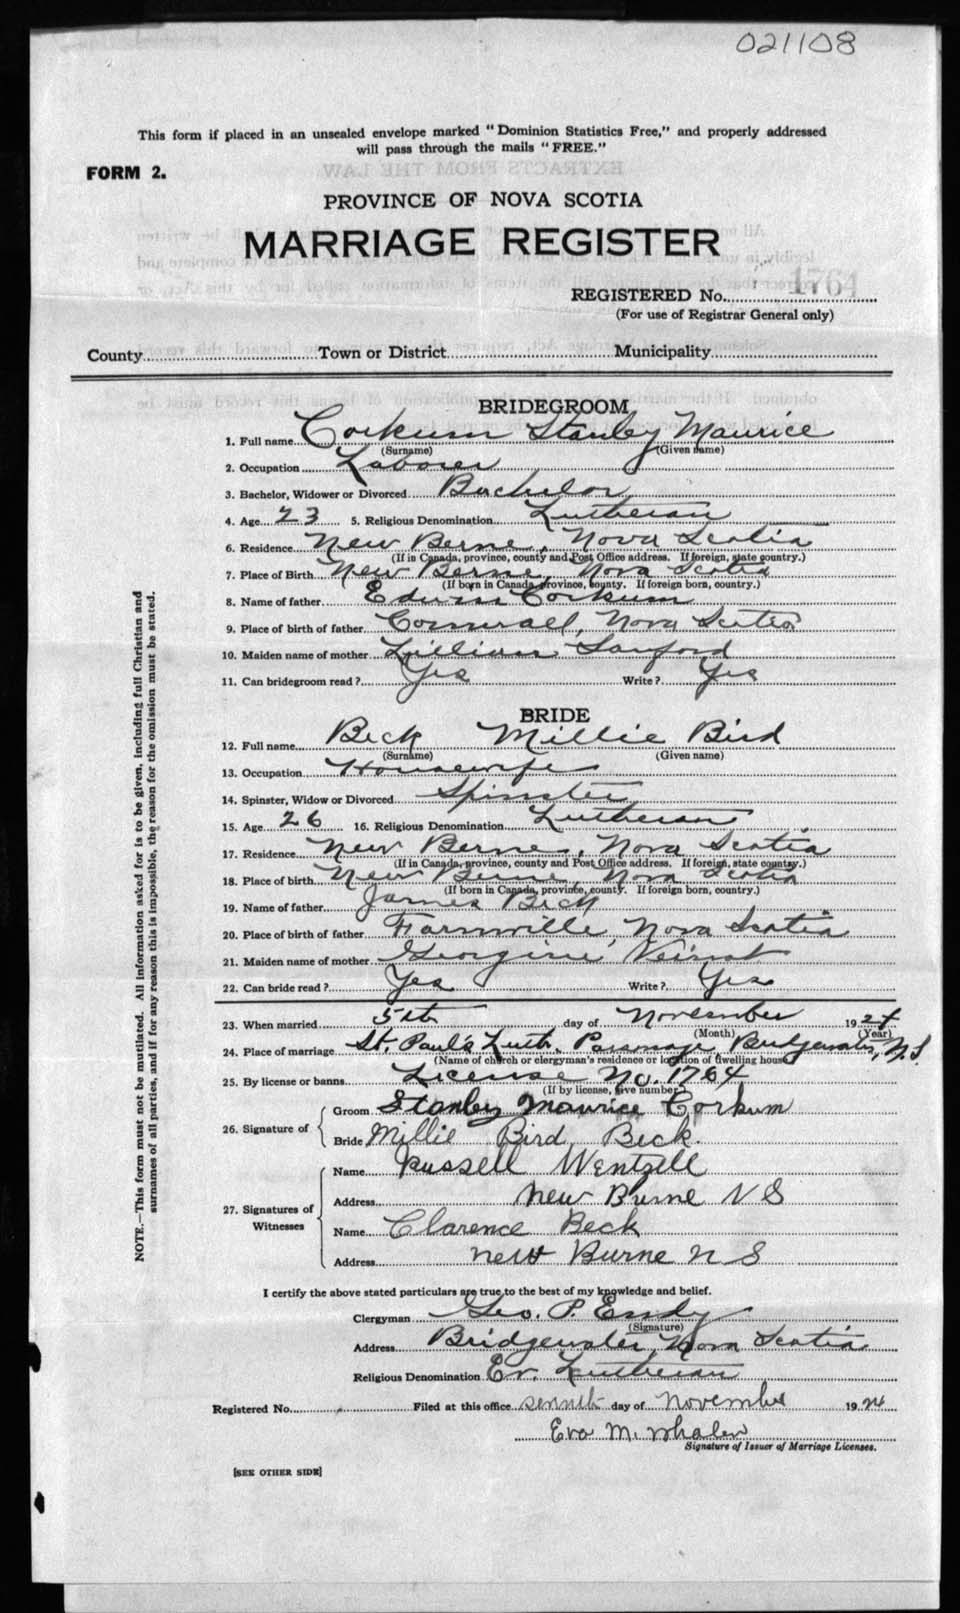 021108
This form if placed in an unsealed envelope marked "Dominion Statistics Free," and properly addressed
will pass through the mails "FREE."
FORM 2.
PROVINCE OF NOVA SCOTIA
MARRIAGE REGISTER
REGISTERED No. 1764
(For use of Registrar General only)
County Town or District Municipality
BRIDEGROOM
1. Full name Corkum Stanley Maurice
(Surname) (Given name)
2. Occupation Laborer
3. Bachelor, Widower or Divorced Bachelor
4. Age 23 5. Religious Denomination Lutheran
6. Residence New Berne, Nova Scotia
(If in Canada, province, county and Post Office address. If foreign, state country.)
7. Place of Birth New Berne, Nova Scotia
(If born in Canada, province, county. If foreign born, country.)
8. Name of father Edwin Corkum
9. Place of birth of father Cornwall, Nova Scotia
10. Maiden name of mother Lillian Sanford
11. Can bridegroom read? Yes Write? Yes
BRIDE
12. Full name Beck Millie Bird
(Surname) (Given name)
13. Occupation Housewife
14. Spinster, Widow or Divorced Spinster
15. Age 26 16. Religious Denomination Lutheran
17. Residence New Berne, Nova Scotia
(If in Canada, province, county and Post Office address. If foreign, state country.)
18. Place of birth New Berne, Nova Scotia
(If born in Canada, province, county. If foreign born, country.)
19. Name of father James Beck
20. Place of birth of father Farmville, Nova Scotia
21. Maiden name of mother Georgine Veinot
22. Can bride read? Yes Write? Yes
23. When married 5th day of November 1924
(Month) (Year)
24. Place of marriage St. Paul's Luth. Parsonage, Bridgewater, N.S.
(Name of church or clergyman's residence or location of dwelling house)
25. By license or banns License No. 1764
(If by license, give number)
26. Signature of
Groom Stanley Maurice Corkum
Bride Millie Bird Beck.
27. Signatures of Witnesses
Name Russell Wentzell
Address New Burne N S
Name Clarence Beck
Address New Burne N S
I certify the above stated particulars are true to the best of my knowledge and belief.
Clergyman Geo. P. Endy
(Signature)
Address Bridgewater, Nova Scotia
Religious Denomination Ev. Lutheran
Registered No. Filed at this office day of November 1924
Eva M. Whalen
Signature of Issuer of Marriage Licenses.
[SEE OTHER SIDE]
NOTE.—This form must not be mutilated. All information asked for is to be given, including full Christian and
surnames of all parties, and if for any reason this is impossible, the reason for the omission must be stated.